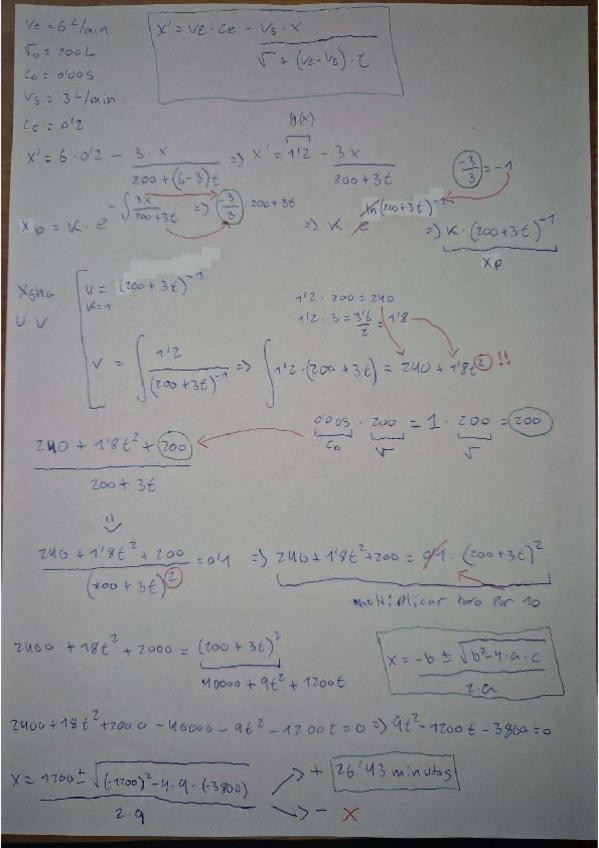 Ve = 6 L/min
V₀ = 200 L
C₀ = 0'005
Vs = 3 L/min
Ce = 0'2
X' = Ve · Ce - Vs · X / V + (Ve - Vs) · t
g(x)
X' = 6 · 0'2 - 3 · X / 200 + (6-3)t => X' = 1'2 - 3X / 200 + 3t
-3/3 = -1
Xp = K · e^-∫ 3X / 200+3t => -3/3 · 200 + 3t => K · e^ln(200+3t)^-1 => K · (200 + 3t)^-1
Xp
U · V
U = (200 + 3t)^-1
K=1
1'2 · 200 = 240
1'2 · 3 = 3'6/2 = 1'8
V = ∫ 1'2 / (200 + 3t)^-1 => ∫ 1'2 · (200 + 3t) = 240 + 1'8t² !!
0'005 · 200 = 1 · 200 = 200
C₀ V V
240 + 1'8t² + 200 / 200 + 3t
240 + 1'8t² + 200 / (200 + 3t)² = 0'1 => 240 + 1'8t² + 200 = 0'1 · (200 + 3t)²
multiplicar todo por 10
2400 + 18t² + 2000 = (200 + 3t)²
40000 + 9t² + 1200t
X = -b ± √b² - 4 · a · c / 2 · a
2400 + 18t² + 2000 - 40000 - 9t² - 1200t = 0 => 9t² - 1200t - 3800 = 0
X = 1200 ± √(-1200)² - 4 · 9 · (-3800) / 2 · 9
+ 26'43 minutos
- X